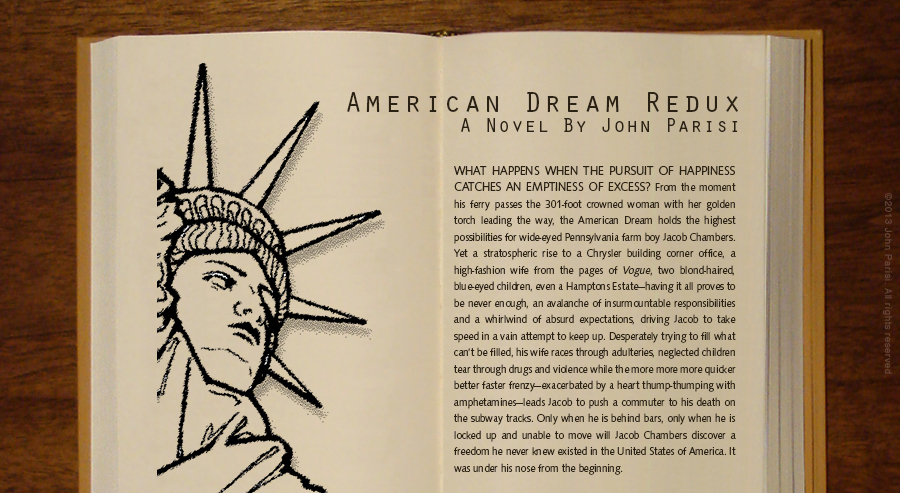 American Dream Redux
A Novel By John Parisi
WHAT HAPPENS WHEN THE PURSUIT OF HAPPINESS
CATCHES AN EMPTINESS OF EXCESS? From the moment
his ferry passes the 301-foot crowned woman with her golden
torch leading the way, the American Dream holds the highest
possibilities for wide-eyed Pennsylvania farm boy Jacob Chambers.
Yet a stratospheric rise to a Chrysler building corner office, a
high-fashion wife from the pages of Vogue, two blond-haired,
blue-eyed children, even a Hamptons Estate—having it all proves to
be never enough, an avalanche of insurmountable responsibilities
and a whirlwind of absurd expectations, driving Jacob to take
speed in a vain attempt to keep up. Desperately trying to fill what
can't be filled, his wife races through adulteries, neglected children
tear through drugs and violence while the more more more quicker
better faster frenzy—exacerbated by a heart thump-thumping with
amphetamines—leads Jacob to push a commuter to his death on
the subway tracks. Only when he is behind bars, only when he is
locked up and unable to move will Jacob Chambers discover a
freedom he never knew existed in the United States of America. It
was under his nose from the beginning.
©2013 John Parisi All rights reserved